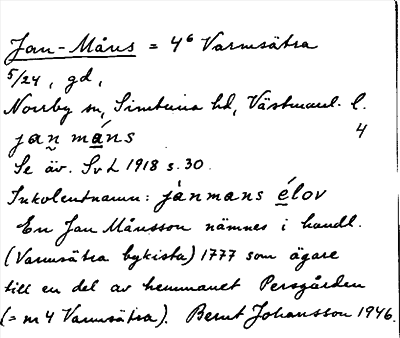 Jan-Måns = 4⁶ Varmsätra
5/24, gd,
Norrby sn, Simtuna hd, Västmanl. l.
jan̰ má̱ns 4
Se äv. SvL 1918 s. 30.
Inkolentnamn: jànmans é̱lov
En Jan Månsson nämnes i handl.
(Varmsätra bykista) 1777 som ägare
till en del av hemmanet Persgården
(= m 4 Varmsätra). Bernt Johansson 1946.